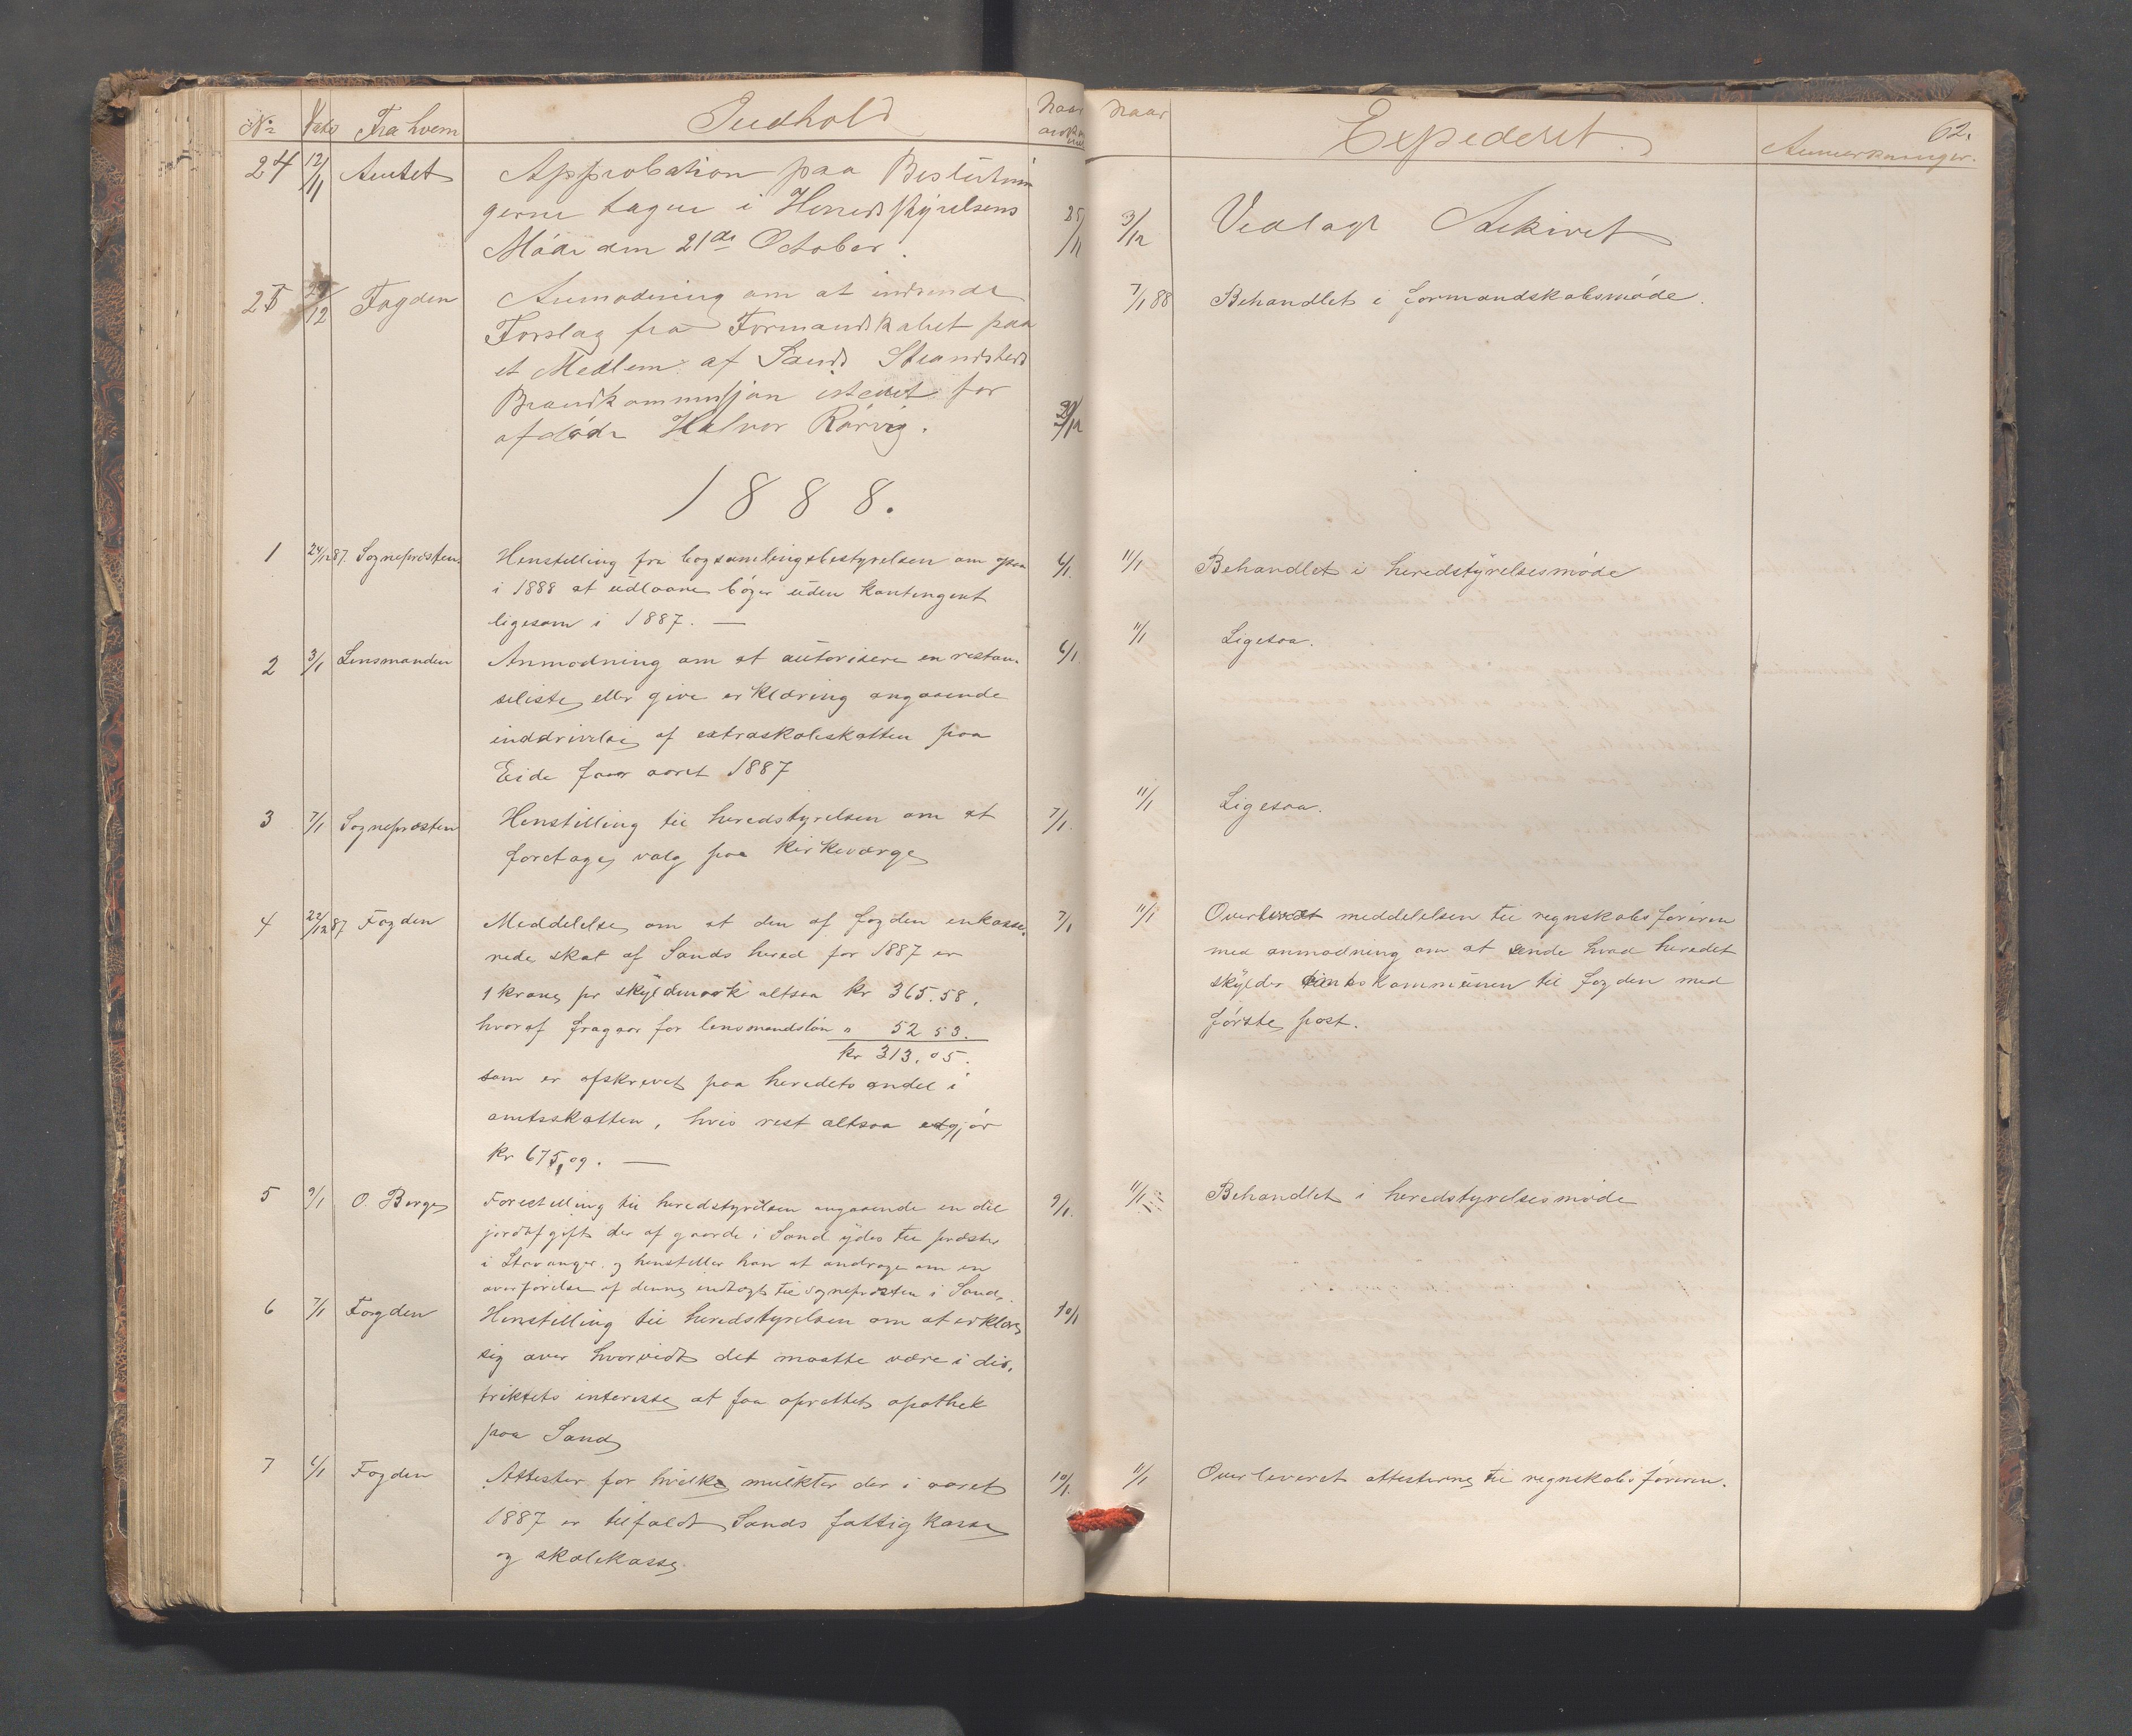 No Dato Fra hvem Indhold Naar ankom
24 12/11 Amtet Approbation paa Beslutnin
gerne tagne i Herredsstyrelsens
Møde den 21de October. 25/11
25 29/12 Fogden Anmodning om at indsende
Forslag fra Formandskabet paa
et Medlem af Sands Strandsteds
Brandkommissjon istedet for
afdøde Halvor Rørvig.
1888.
1 24/12 87. Sognepresten Henstilling fra bogsamlingsbestyrelsen om ogsaa 6/1.
i 1888 at udlaane bøger uden kontingent
ligesom i 1887. —
2 3/1 Lensmanden Anmodning om at autorisere en restan- 6/1.
seliste, eller give erklæring angaaende
inddrivelse af extraskoleskatten paa
Eide for aaret 1887
3 7/1 Sognepresten Henstilling til heredstyrelsen om at 7/1.
foretage valg paa kirkeværge
4 22/12 87 Fogden Meddelelse om at den af fogden enkasse- 7/1
rede skat af Sands hered for 1887 er
1 krone pr skyldmark altsaa kr 365.58,
hvoraf fragaar for lensmandsløn " 52 53.
kr 313.05.
som er afskrevet paa heredets andel i
amtsskatten, hvis rest altsaa udgjør
kr 675,09. —
5 9/1 O. Berge Forestilling til heredstyrelsen angaaende en del 9/1.
jordafgift der af gaarde i Sand ydes til præster
i Stavanger, og henstiller han at andrage om en
overførelse af denne indtægt til sognepresten i Sand.
6 7/1 Fogden Henstilling til heredstyrelsen om at erklære 10/1
sig over hvorvidt det maatte være i dis-
triktets interesse at faa oprettet apothek
paa Sand
7 6/1 Fogden Attester for hvilke mulkter der i aaret 10/1.
1887 er tilfaldt Sands fattigkasse
og skolekasse.
Naar Expederet. Anmerkninger. 62.
3/12 Vedlagt Arkivet
7/1 88 Behandlet i formandskabsmøde.
11/1 Behandlet i heredstyrelsesmøde
11/1 Ligesaa.
11/1 Ligesaa.
11/1 Overleveret meddelelsen til regnskabsføreren
med anmodning om at sende hvad heredet
skylder amtskommunen til fogden med
første post.
11/1 Behandlet i heredstyrelsesmøde
11/1 Overleveret attesterne til regnskabsføreren.